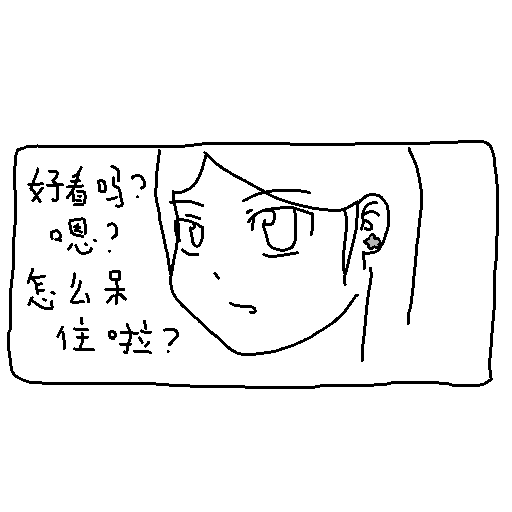 好看吗？
嗯？
怎么呆
住啦？